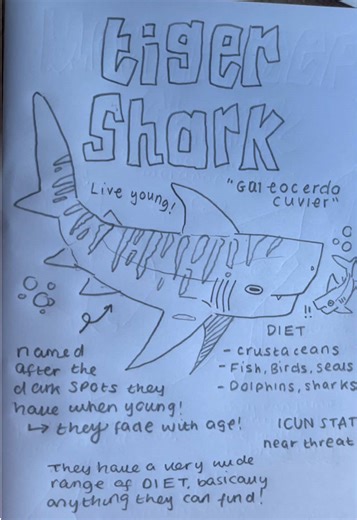 tiger
Shark
Live young!
"Galeocerdo
cuvier"
!!
DIET
- crustaceans
- Fish, Birds, seals
- Dolphins, sharks
named
after the
dark spots they
have when young!
↳ they fade with age!
ICUN STAT
near threat
They have a very wide
range of DIET, basically
anything they can find!